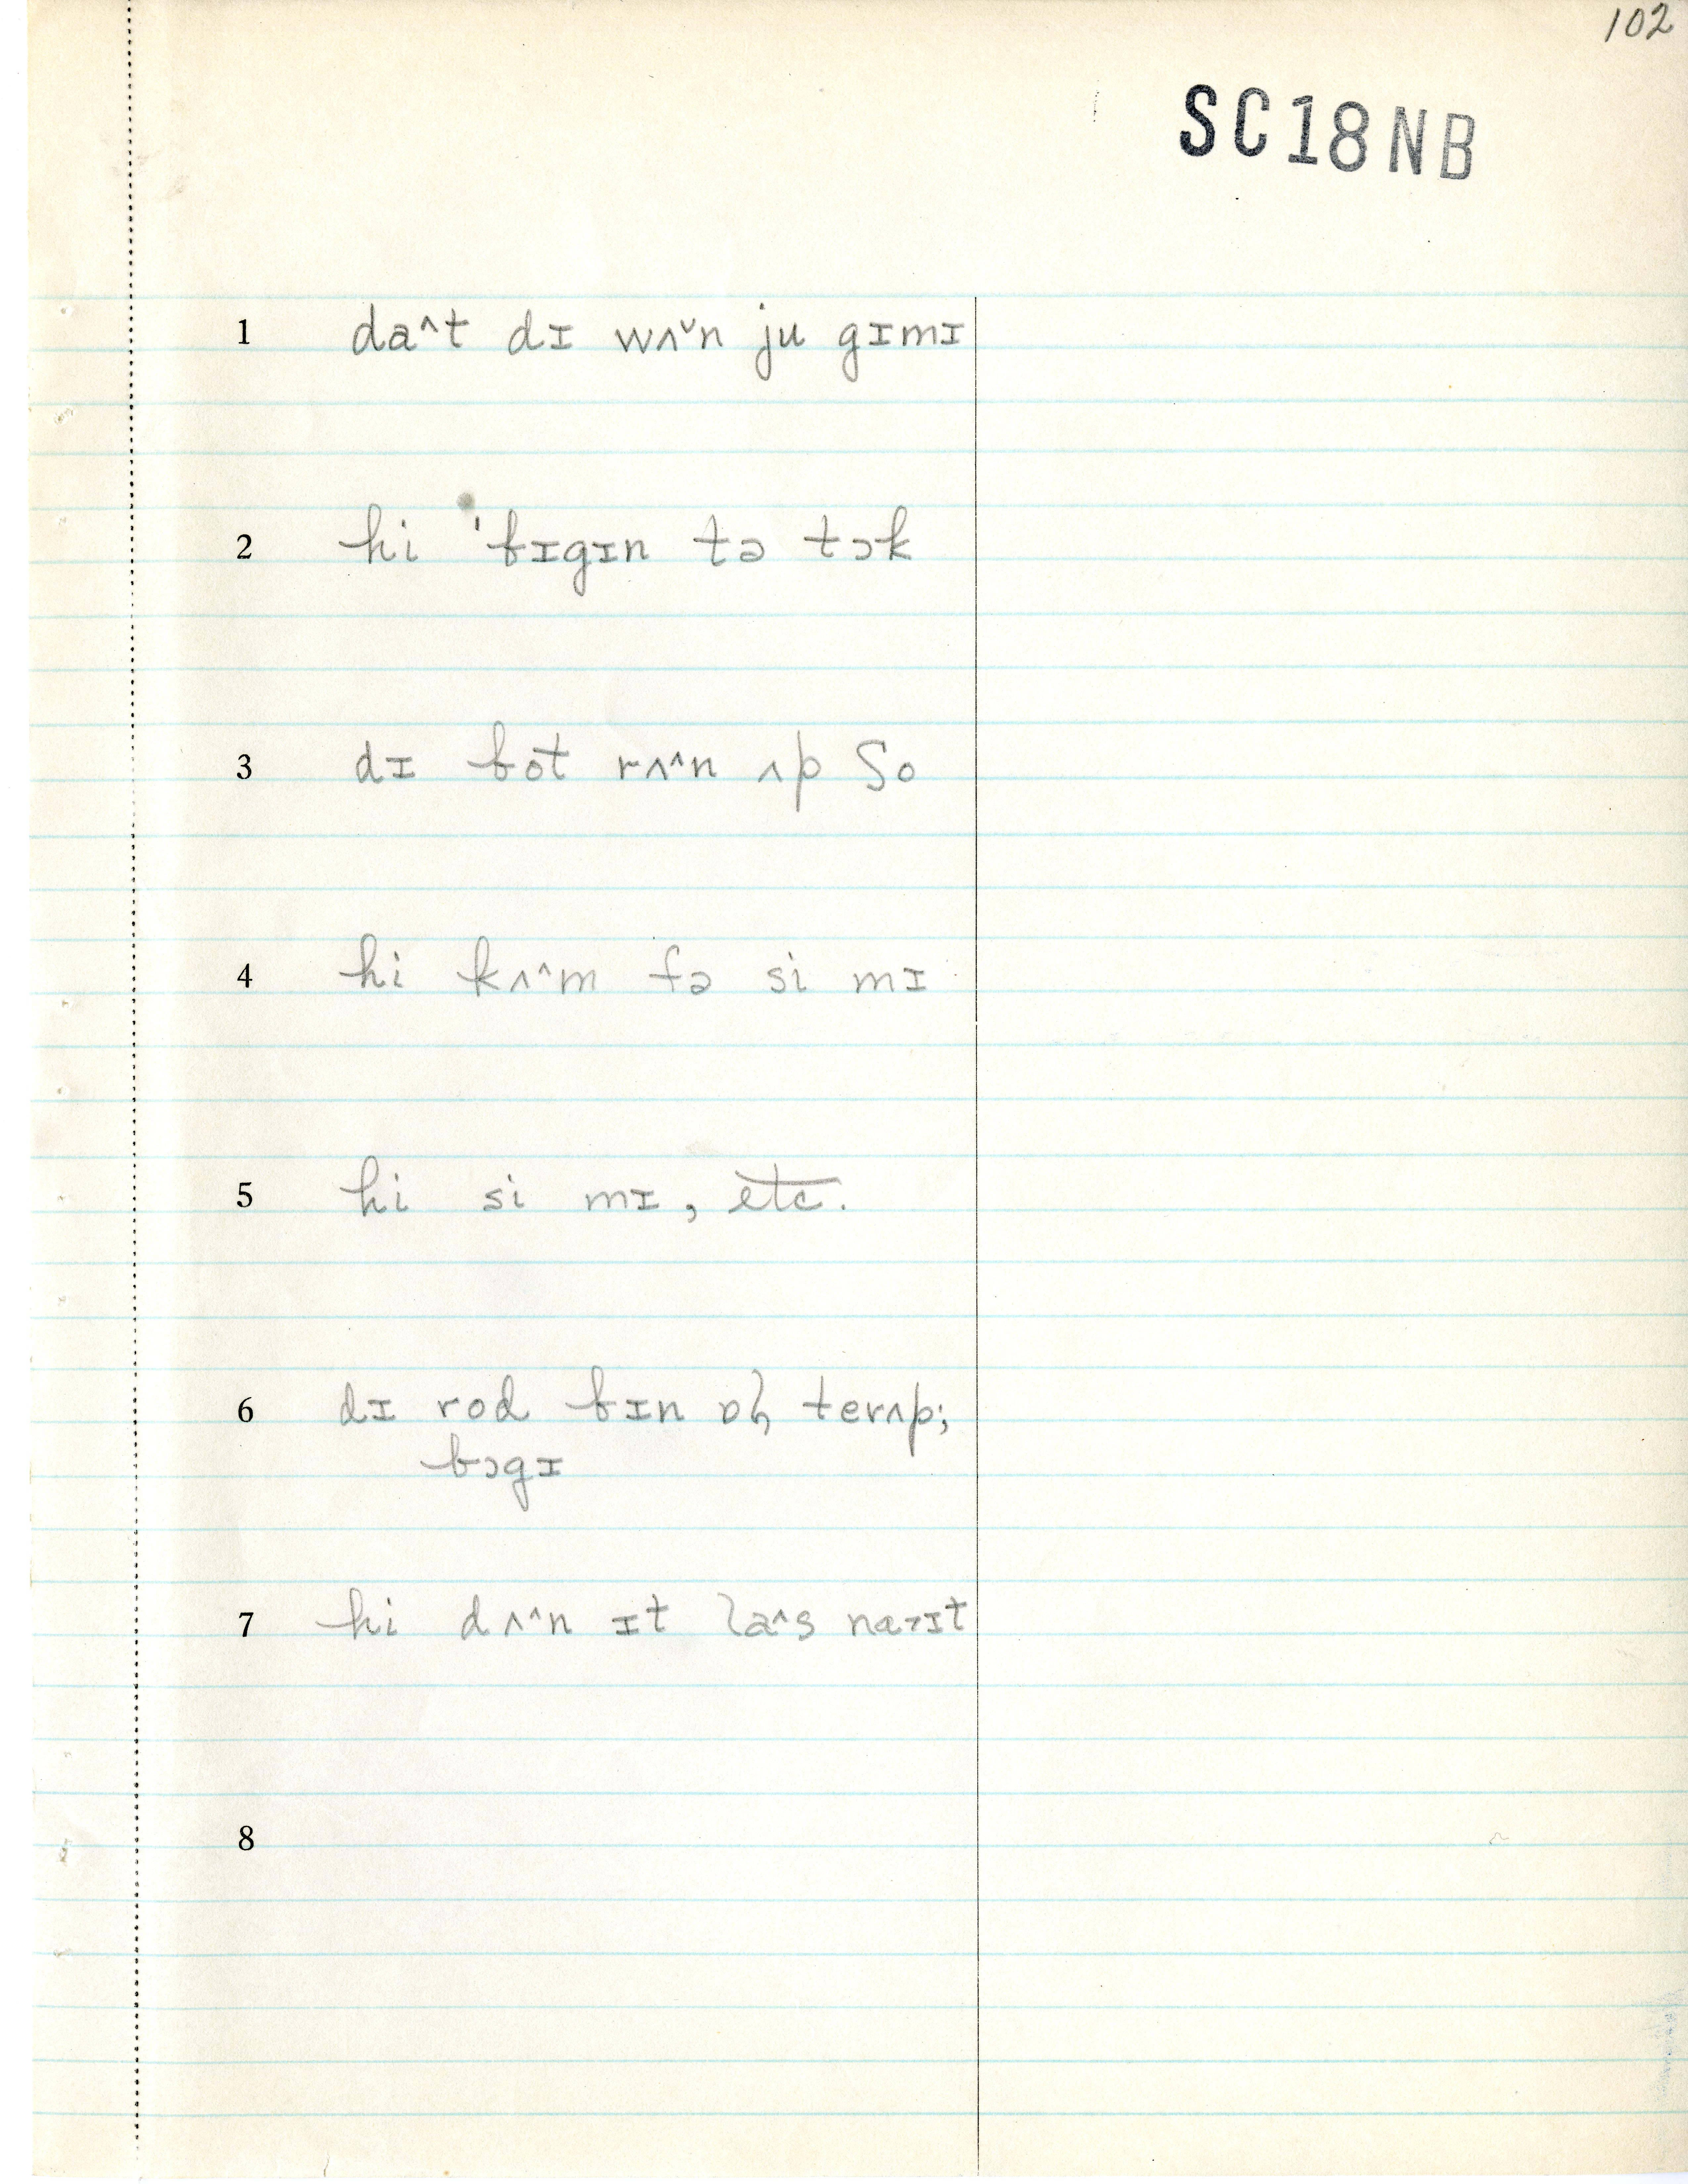 102
SC18NB
1 da^t dɪ wʌˇn ju gɪmɪ
2 hi ˈbɪgɪn tə tɔk
3 dɪ bot rʌ^n ʌp ʃo
4 hi kʌ^m fə si mɪ
5 hi si mɪ, etc.
6 dɪ rod bɪn ɒl terʌp;
bɔgɪ
7 hi dʌ^n ɪt la^s naɪt
8